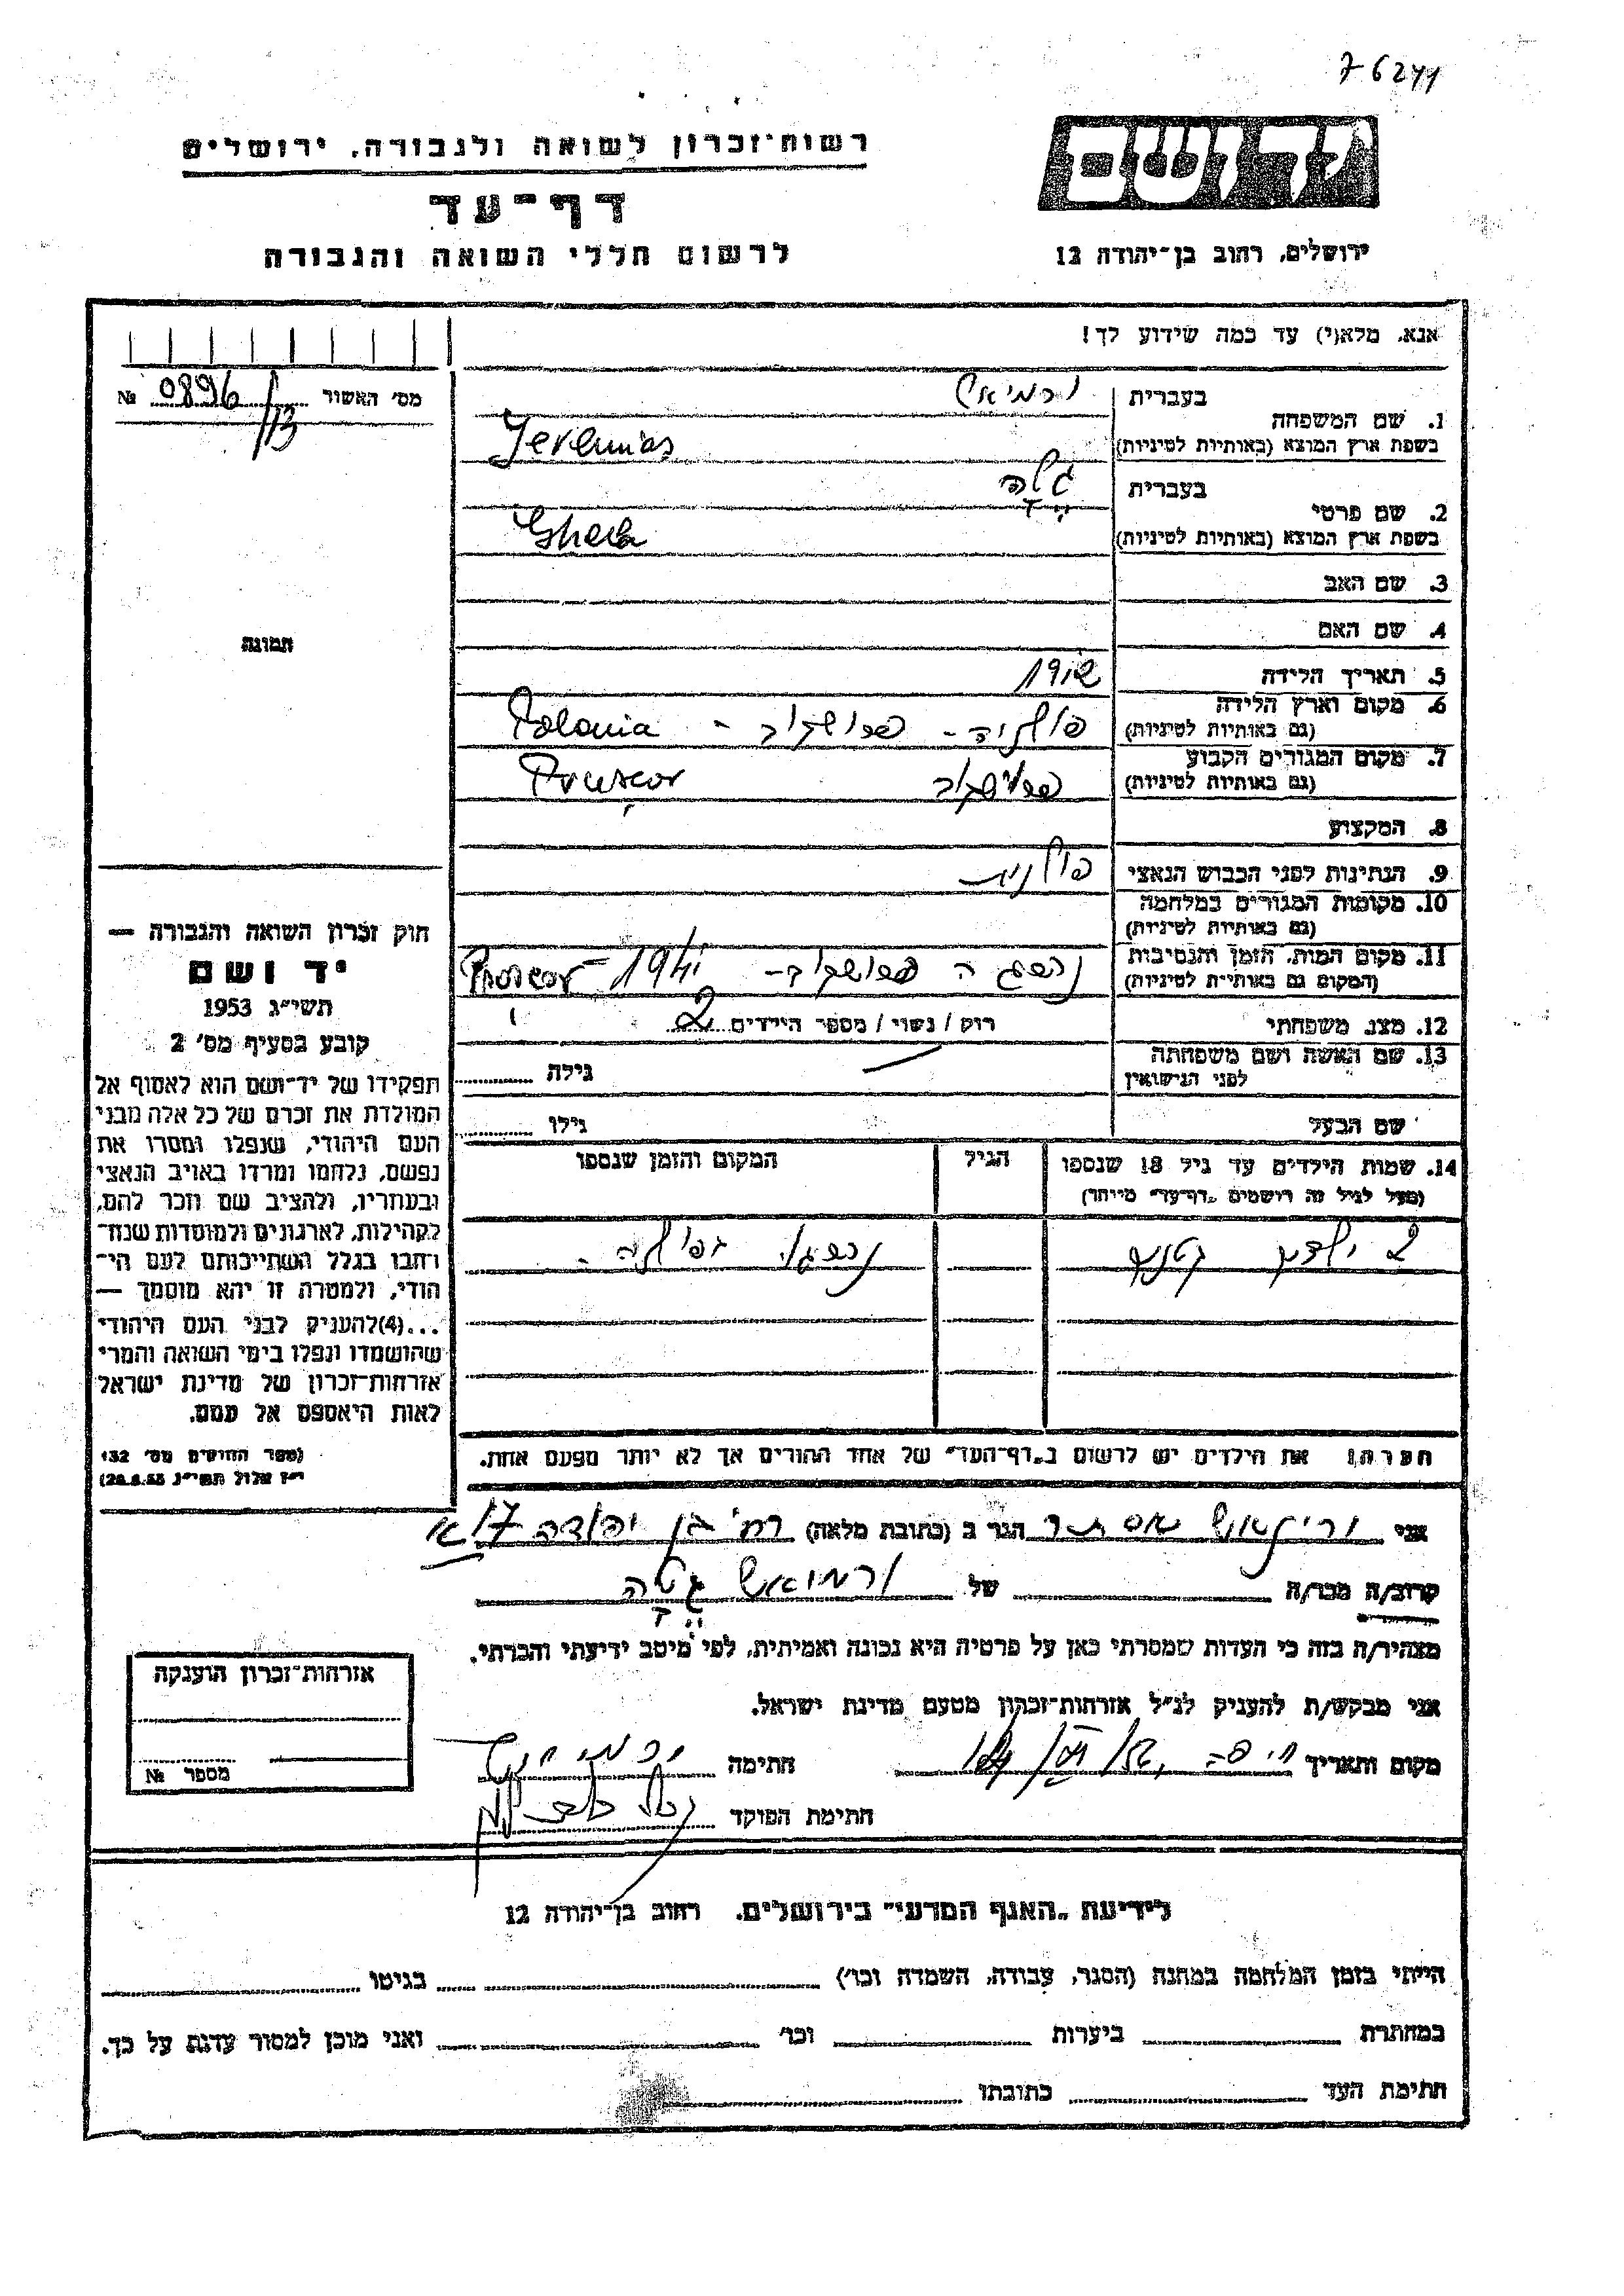 76244
רשות־זכרון לשואה ולגבורה, ירושלים
דף־עד
לרשום חללי השואה והגבורה
ירושלים, רחוב בן־יהודה 12
אנא, מלא(י) עד כמה שידוע לך!
מס' האשור 0896/113 №
1. שם המשפחה
בעברית
בשפת ארץ המוצא (באותיות לטיניות) Jeremias
2. שם פרטי
בעברית
בשפת ארץ המוצא (באותיות לטיניות)
3. שם האב
4. שם האם
תמונה
5. תאריך הלידה 1912
6. מקום וארץ הלידה
(גם באותיות לטיניות) Polonia
7. מקום המגורים הקבוע
(גם באותיות לטיניות)
8. המקצוע
9. הנתינות לפני הכבוש הנאצי פולנית
10. מקומות המגורים במלחמה
(גם באותיות לטיניות)
11. מקום המות, הזמן והנסיבות
(המקום גם באותיות לטיניות) 1941
12. מצב משפחתי רוק / נשוי / מספר הילדים 2
13. שם האשה ושם משפחתה
לפני הנישואין גילה
שם הבעל גילו
14. שמות הילדים עד גיל 18 שנספו הגיל המקום והזמן שנספו
(מעל לגיל זה רושמים „דף־עד" מיוחד)
2 ילדים קטנים
הערה: את הילדים יש לרשום ב„דף־העד" של אחד ההורים אך לא יותר מפעם אחת.
חוק זכרון השואה והגבורה —
יד ושם
תשי״ג 1953
קובע בסעיף מס' 2
תפקידו של יד־ושם הוא לאסוף אל
המולדת את זכרם של כל אלה מבני
העם היהודי, שנפלו ומסרו את
נפשם, נלחמו ומרדו באויב הנאצי
ובעוזריו, ולהציב שם וזכר להם,
לקהילות, לארגונים ולמוסדות שנח־
רחבו בגלל השתייכותם לעם הי־
הודי, ולמטרה זו יהא מוסמך —
...(4)להעניק לבני העם היהודי
שהושמדו ונפלו בימי השואה והמרי
אזרחות־זכרון של מדינת ישראל
לאות היאספם אל עמם.
(ספר החוקים מס' 132
י״ז אלול תשי״ג 28.8.53)
אני אסתר הגר ב (כתובת מלאה) רח' בן יהודה 17/א
קרוב/ה מכר/ה של
מצהיר/ה בזה כי העדות שמסרתי כאן על פרטיה היא נכונה ואמיתית, לפי מיטב ידיעתי והכרתי.
אני מבקש/ת להעניק לנ״ל אזרחות־זכרון מטעם מדינת ישראל.
מקום ותאריך חיפה חתימה
חתימת הפוקד
אזרחות־זכרון הוענקה
מספר №
לידיעת „האגף המדעי" בירושלים, רחוב בן־יהודה 12
הייתי בזמן המלחמה במחנה (הסגר, עבודה, השמדה וכו') בגיטו
במחתרת ביערות וכו' ואני מוכן למסור עדות על כך.
חתימת העד כתובתו